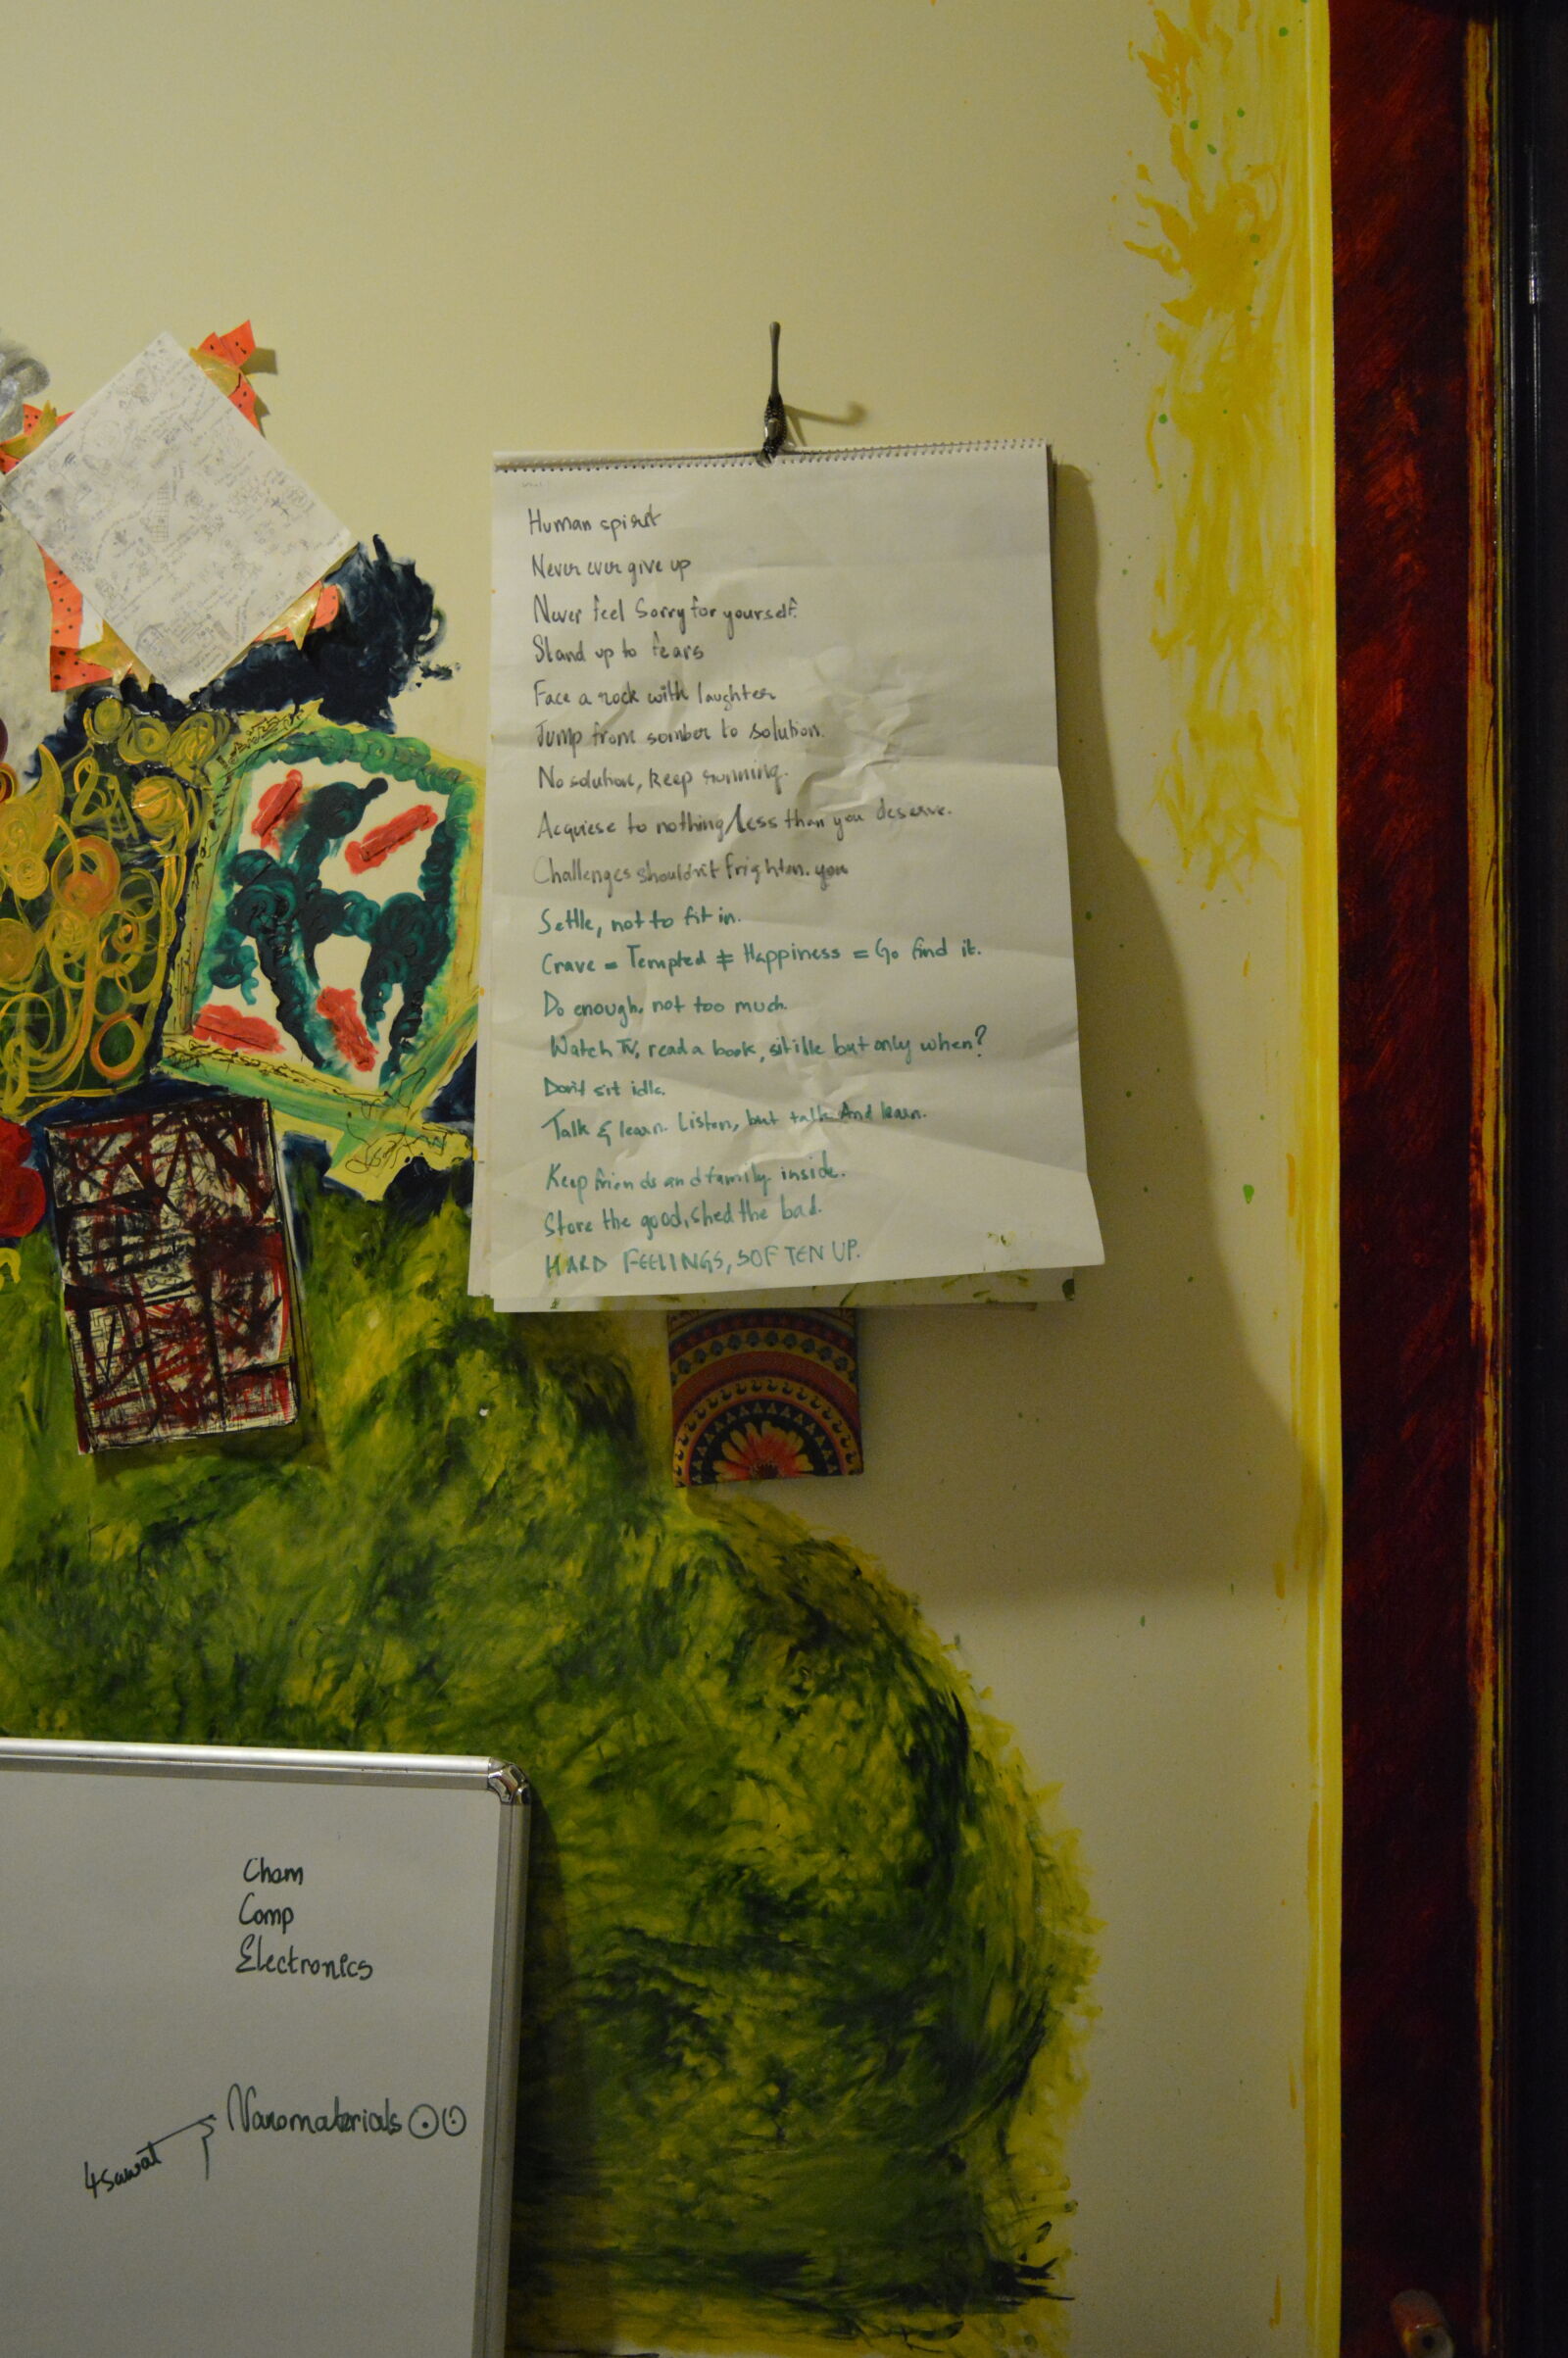 Human spirit
Never ever give up
Never feel Sorry for yourself.
Stand up to fears
Face a rock with laughter
Jump from somber to solution.
No solution, keep running.
Acquiese to nothing/less than you deserve.
Challenges shouldn't frighten. you
Settle, not to fit in.
Crave = Tempted ≠ Happiness = Go find it.
Do enough, not too much.
Watch TV, read a book, but only when?
Don't sit idle.
Talk & learn. Listen, but talk And learn.
Keep friends and family inside.
Store the good, shed the bad.
HARD FEELINGS, SOFTEN UP.
Chem
Comp
Electronics
Nanomaterials